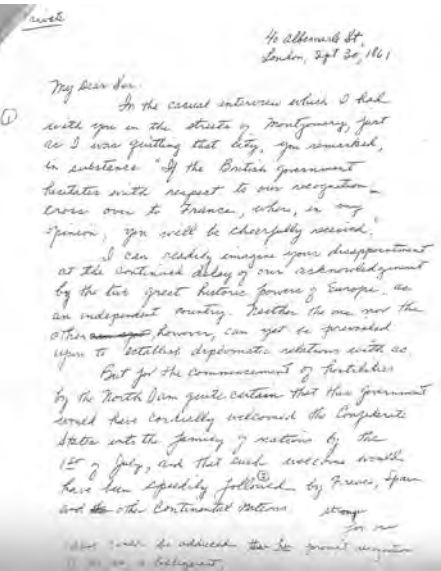 Private
40 Albemarle St,
London, Sept 30, 1861
My Dear Sir.
①
In the casual interview which I had
with you in the streets of Montgomery, just
as I was quitting that city, you remarked,
in substance "If the British government
hesitates with respect to our recognition—
cross over to France, where, in my
opinion, you will be cheerfully received."
I can readily imagine your disappointment
at the continued delay of our acknowledgment
by the two great historic powers of Europe, as
an independent country. Neither the one nor the
other however, can yet be
upon to establish diplomatic relations with us.
But for the commencement of hostilities
by the North I am quite certain that this government
would have cordially welcomed the Confederate
States into the family of nations by the
1st of July, and that such welcome would
have been speedily followed by France, Spain
and other Continental Nations.
②
strong
for
be adduced the prompt recognition
of us as a belligerent